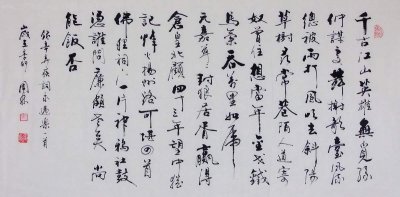 千古江山英雄無覓孫
仲謀處舞榭歌臺風流
總被雨打風吹去斜陽
草樹尋常巷陌人道寄
奴曾住想當年金戈鐵
馬氣吞萬里如虎
元嘉草草封狼居胥贏得
倉皇北顧四十三年望中猶
記烽火揚州路可堪回首
佛狸祠下一片神鴉社鼓
憑誰問廉頗老矣尚
能飯否
辛棄疾詞永遇樂一首